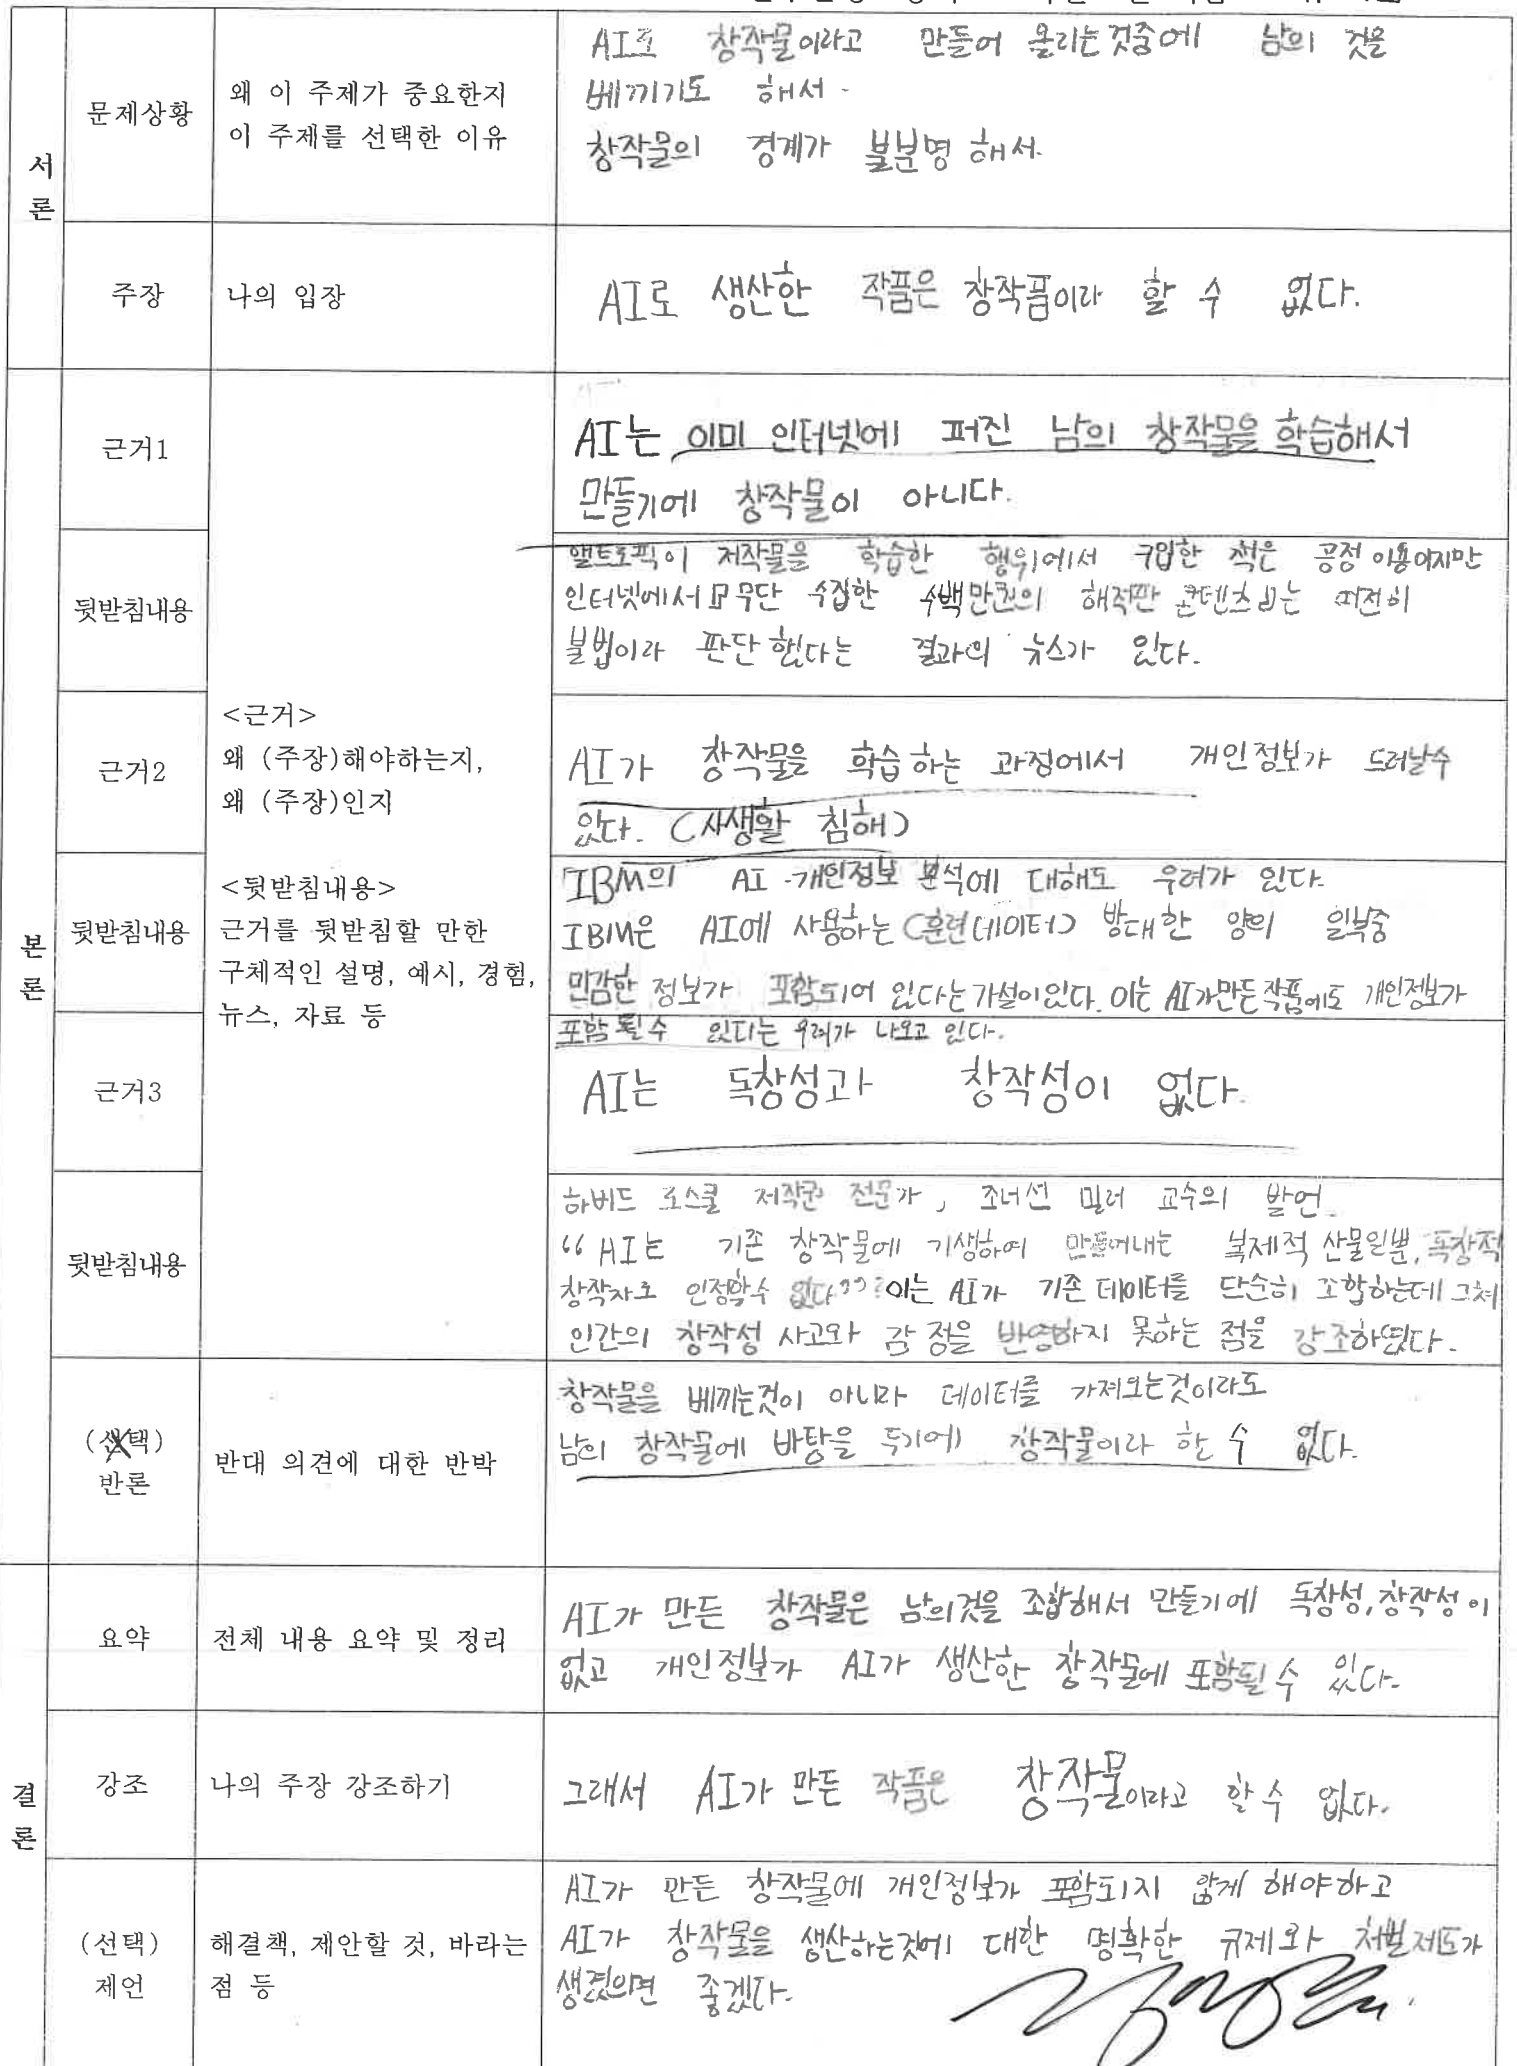 서론
문제상황
왜 이 주제가 중요한지
이 주제를 선택한 이유
AI로 창작물이라고 만들어 올리는것중에 남의 것을
베끼기도 해서.
창작물의 경계가 불분명 해서.
주장
나의 입장
AI로 생산한 작품은 창작품이라 할 수 없다.
본론
근거1
AI는 이미 인터넷에 퍼진 남의 창작물을 학습해서
만들기에 창작물이 아니다.
<근거>
왜 (주장)해야하는지,
왜 (주장)인지
<뒷받침내용>
근거를 뒷받침할 만한
구체적인 설명, 예시, 경험,
뉴스, 자료 등
뒷받침내용
앤트로픽이 저작물을 학습한 행위에서 구입한 책은 공정 이용이지만
인터넷에서 무단 수집한 수백만권의 해적판 콘텐츠는 여전히
불법이라 판단 했다는 결과의 뉴스가 있다.
근거2
AI가 창작물을 학습하는 과정에서 개인정보가 드러날수
있다. (사생활 침해)
뒷받침내용
IBM의 AI 개인정보 분석에 대해도 우려가 있다.
IBM은 AI에 사용하는 (훈련데이터) 방대한 양의 일부중
민감한 정보가 포함되어 있다는 가설이있다. 이는 AI가만든작품에도 개인정보가
포함 될수 있다는 우려가 나오고 있다.
근거3
AI는 독창성과 창작성이 없다.
뒷받침내용
하버드 로스쿨 저작권 전문가, 조너선 밀러 교수의 발언.
“AI는 기존 창작물에 기생하여 만들어내는 복제적 산물일뿐, 독창적
창작자로 인정할수 없다” 이는 AI가 기존 데이터를 단순히 조합하는데 그쳐
인간의 창작성 사고와 감정을 반영하지 못하는 점을 강조하였다.
(선택)
반론
반대 의견에 대한 반박
창작물을 베끼는것이 아니라 데이터를 가져오는것이라도
남의 창작물에 바탕을 두기에 창작물이라 할 수 없다.
결론
요약
전체 내용 요약 및 정리
AI가 만든 창작물은 남의것을 조합해서 만들기에 독창성, 창작성이
없고 개인정보가 AI가 생산한 창작물에 포함될 수 있다.
강조
나의 주장 강조하기
그래서 AI가 만든 작품은 창작물이라고 할 수 없다.
(선택)
제언
해결책, 제안할 것, 바라는
점 등
AI가 만든 창작물에 개인정보가 포함되지 않게 해야하고
AI가 창작물을 생산하는것에 대한 명확한 규제와 처벌제도가
생겼으면 좋겠다.